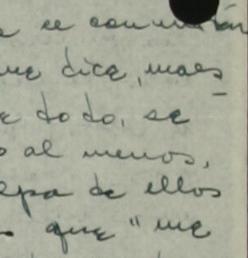 se
me dice, maes-
e todo, se
o al menos,
epa de ellos
que "me